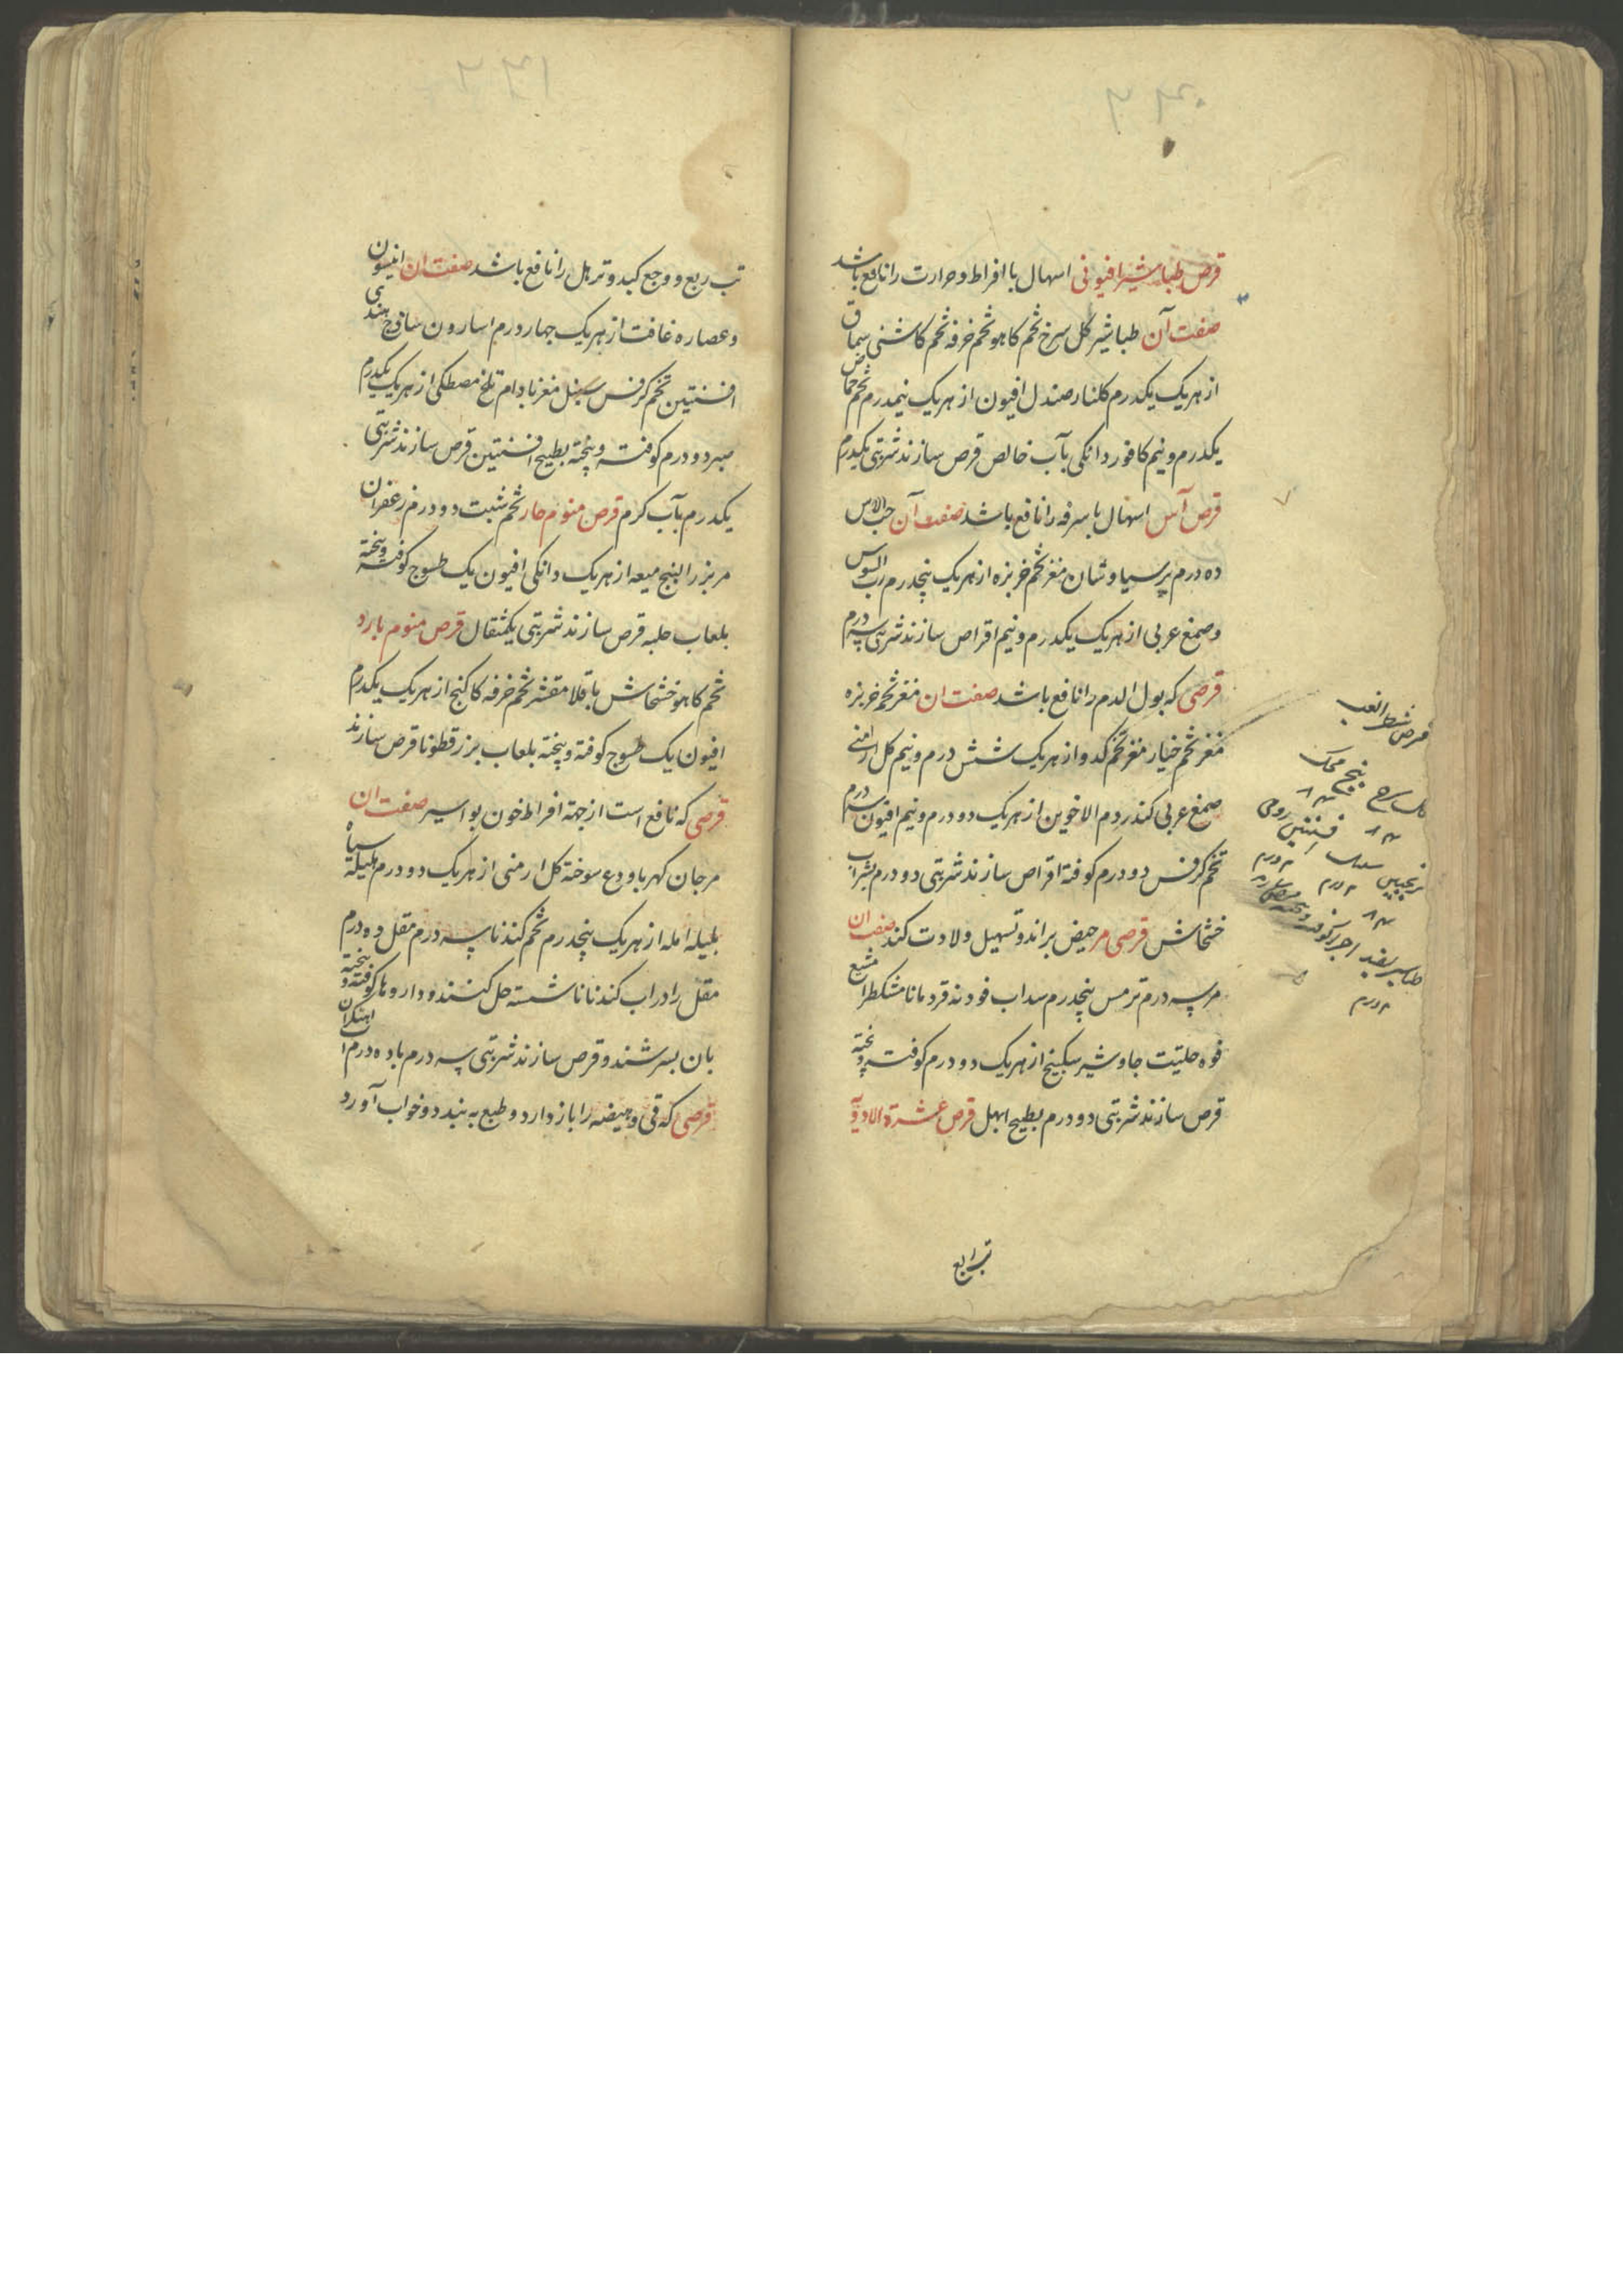 قرص طباشیر افیونی اسهال با افراط و حرارت را نافع باشد
صفت آن طباشیر کل سرخ تخم کاهو تخم خرفه تخم کاشنی سماق
از هر یک یکدرم کلنار صندل افیون از هر یک نیمدرم تخم حماض
یکدرم و نیم کافور دانکی بآب خالص قرص سازند شربتی یکدرم
قرص آس اسهال با سرفه را نافع باشد صفت آن حب الاس
ده درم پرسیاوشان مغز تخم خربزه از هر یک پنجدرم رب السوس
و صمغ عربی از هر یک یکدرم و نیم اقراص سازند شربتی سه درم
قرصی که بول الدم را نافع باشد صفت ان مغز تخم خربزه
مغز تخم خیار مغز تخم کدو از هر یک شش درم و نیم کل ارمنی
صمغ عربی کندر دم الاخوین از هر یک دو درم و نیم افیون سه درم
تخم کرفس دو درم کوفته اقراص سازند شربتی دو درم بشراب
خشخاش قرصی مر حیض براند و تسهیل ولادت کند صفت ان
مر سه درم ترمس پنجدرم سداب فودنه قردمانا مشکطرامشیع
فوه حلتیت جاوشیر سکبینج از هر یک دو درم کوفته و پخته
قرص سازند شربتی دو درم بطبیخ ابهل قرص عشرة الادویة
تب ربع
قرص شطر الغب
کل سرخ بیخ محک
فسنتین رومی
سنبل
۲ درم ۲ درم
طباشیر سفید اجزا کوفته و پخته
۲ درم
تب ربع و وجع کبد و ترهل را نافع باشد صفت ان انیسون
و عصاره غافت از هر یک چهار درم اسارون ساذج هندی
افسنتین تخم کرفس سنبل مغز بادام تلخ مصطکی از هر یک یکدرم
صبر دو درم کوفته و پخته بطبیخ افسنتین قرص سازند شربتی
یکدرم بآب کرم قرص منوم حار تخم شبت دو درم زعفران
مر بزر البنج میعه از هر یک دانکی افیون یک طسوج کوفته و پخته
بلعاب حلبه قرص سازند شربتی یکمثقال قرص منوم بارد
تخم کاهو خشخاش باقلا مقشر تخم خرفه کاکنج از هر یک یکدرم
افیون یک طسوج کوفته و پخته بلعاب بزر قطونا قرص سازند
قرصی که نافع است از جهة افراط خون بواسیر صفت ان
مرجان کهربا و ودع سوخته کل ارمنی از هر یک دو درم هلیله سیاه
بلیله امله از هر یک پنجدرم تخم کندنا سه درم مقل ده درم
مقل را در اب کندنا ناشسته حل کنند و داروها کوفته و پخته
بان بسرشند و قرص سازند شربتی سه درم با ده درم اب اهنکران
قرصی که قی و هیضه را باز دارد و طبع به بندد و خواب آورد